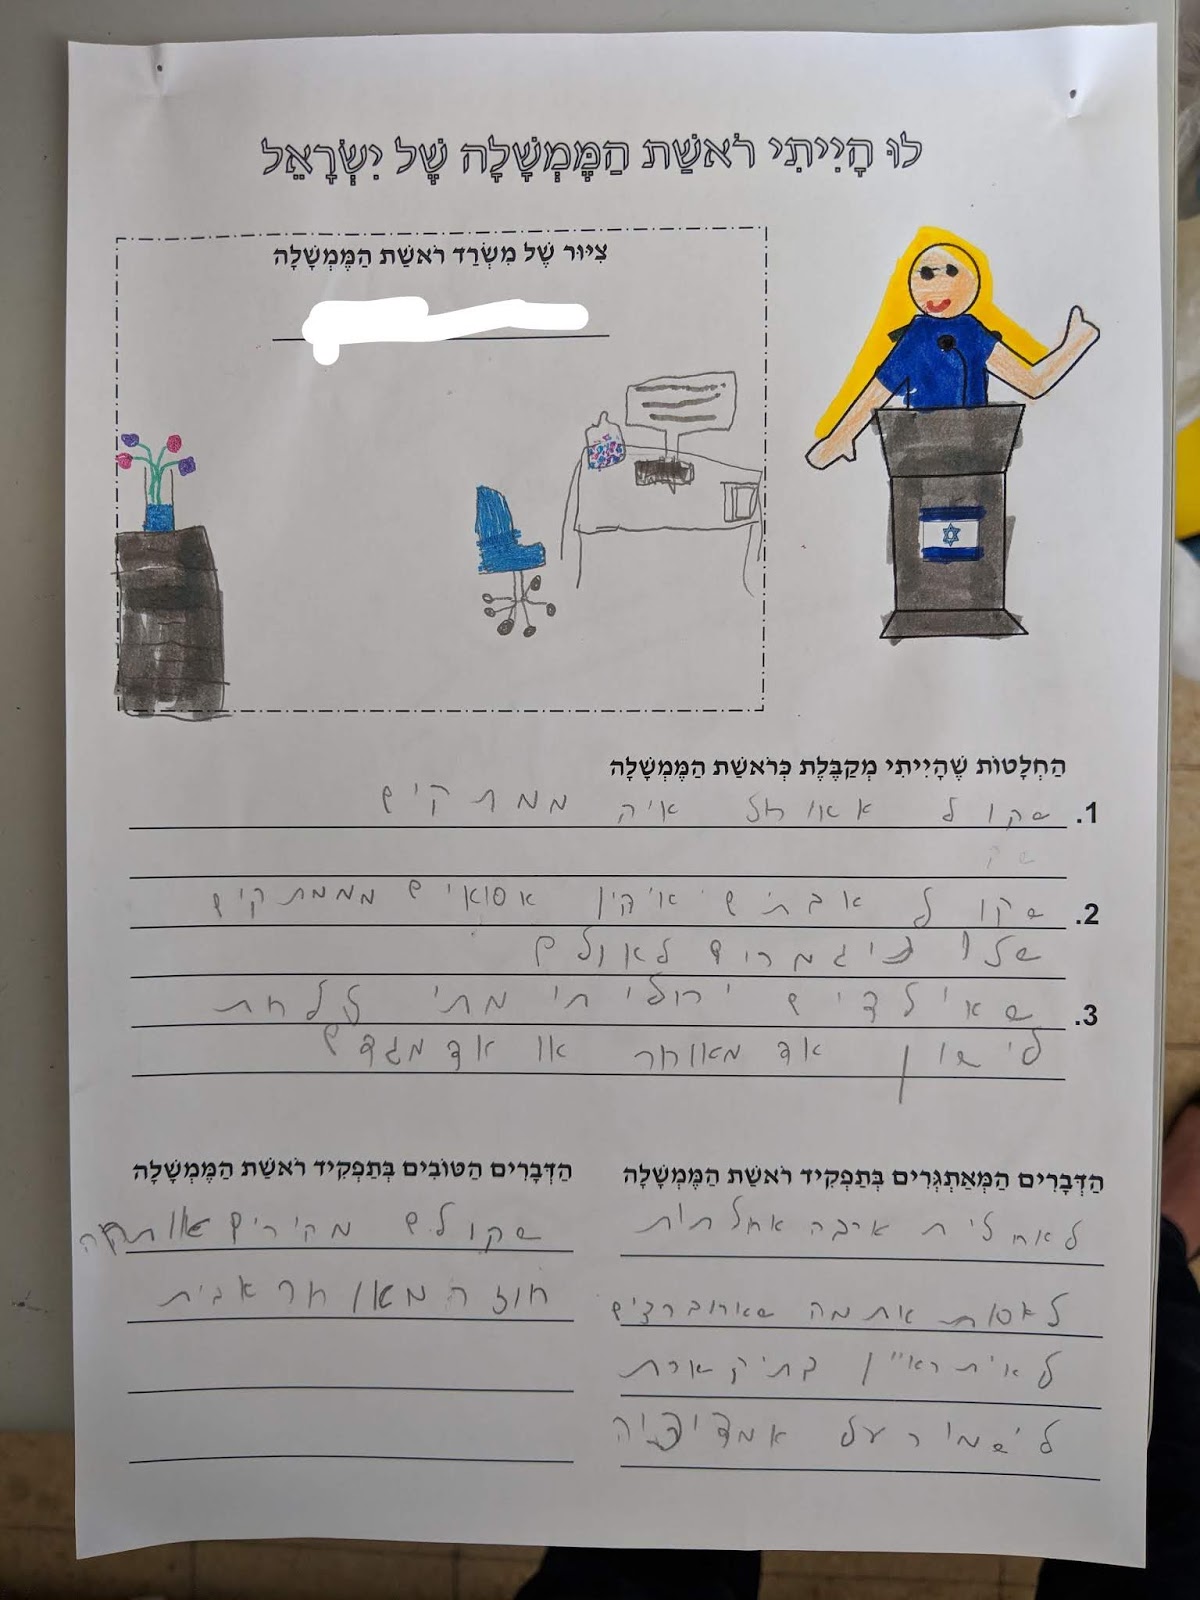 לוּ הָיִיתִי רֹאשַׁת הַמֶּמְשָׁלָה שֶׁל יִשְׂרָאֵל
צִיּוּר שֶׁל מִשְׂרַד רֹאשַׁת הַמֶּמְשָׁלָה
הַחְלָטוֹת שֶׁהָיִיתִי מְקַבֶּלֶת כְּרֹאשַׁת הַמֶּמְשָׁלָה
1. שקול אאוחל איה ממתקים
שק
2. שקול אבתים איהין אסואים מממתקים
שלו יגמרים לאולם
3. שאילדים יחליתי מתי ללחת
לישון אד מאוחר או אד מגדם
הַדְּבָרִים הַמְּאַתְגְּרִים בְּתַפְקִיד רֹאשַׁת הַמֶּמְשָׁלָה
לאחלית ארבה אחלתות
לאסות את מה שארוב רצים
לאיתראיין בתיקשרת
לישמור על אמדיניה
הַדְּבָרִים הַטּוֹבִים בְּתַפְקִיד רֹאשַׁת הַמֶּמְשָׁלָה
שקולם מקירים אותה
חוזה מאוחר אבית